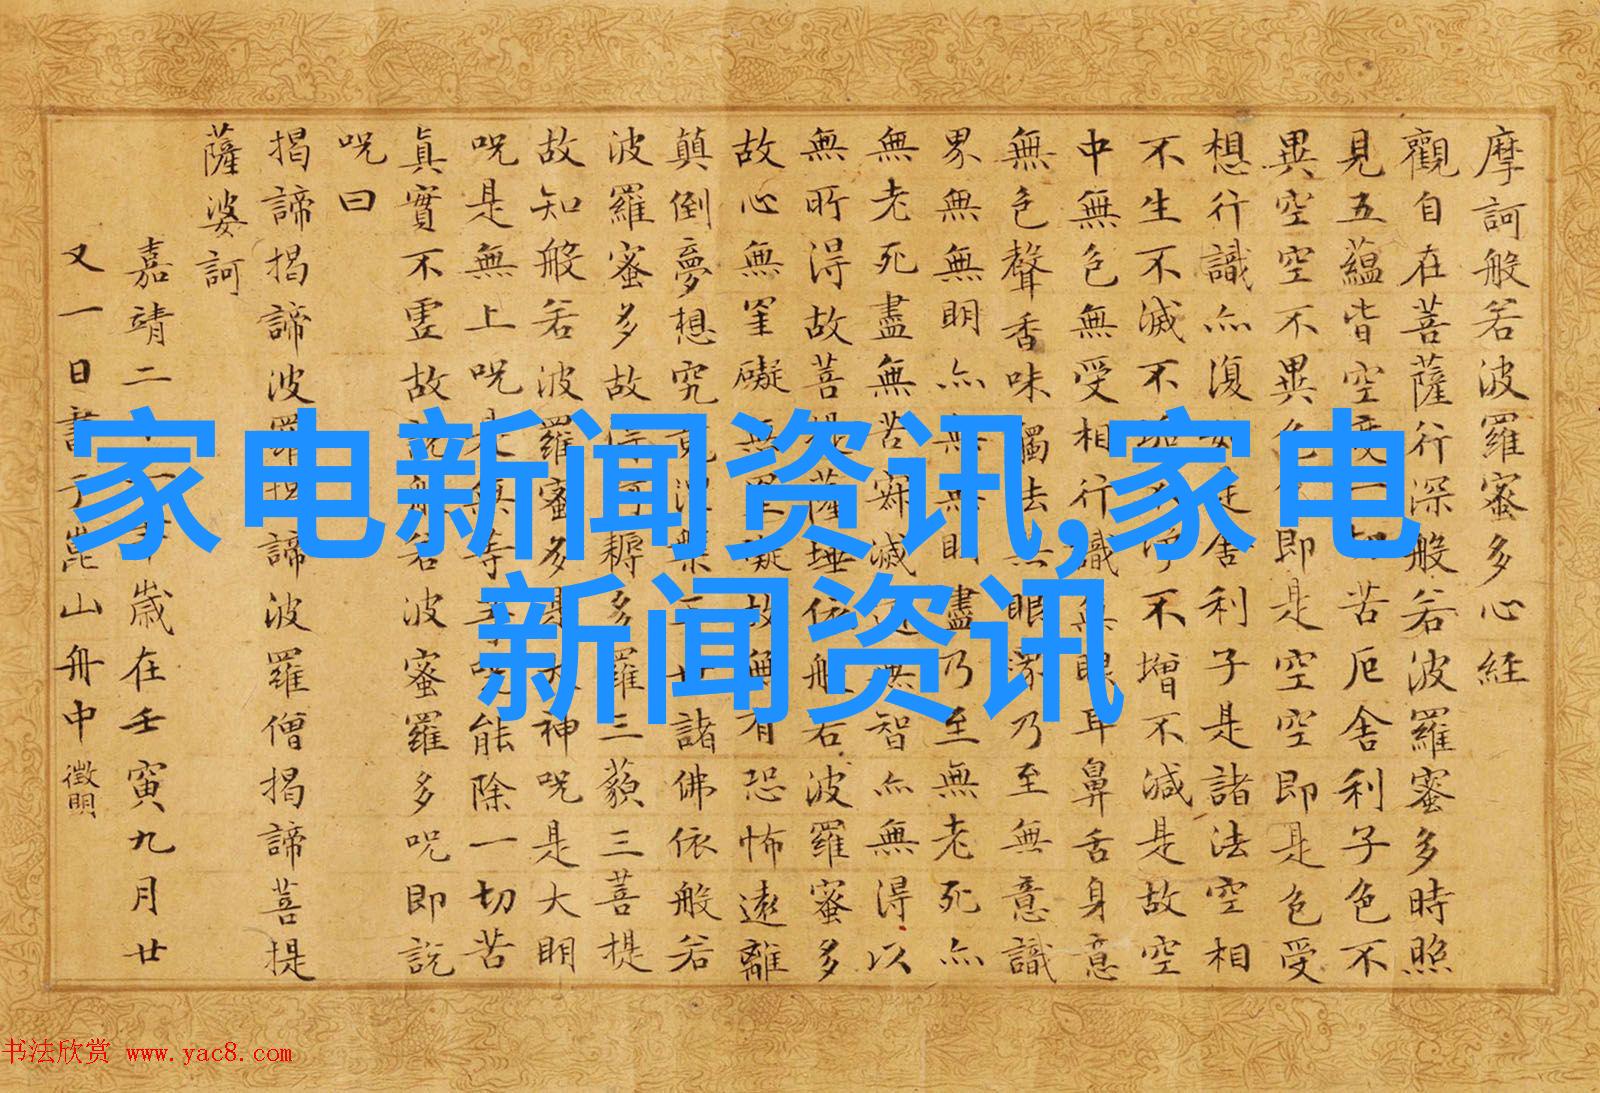 摩訶般若波羅蜜多心経
觀自在菩薩行深般若波羅蜜多時照
見五蘊皆空度一切苦厄舍利子色不
異空空不異色即是空空即是色受
想行識亦復如是舍利子是諸法空相
不生不滅不垢不淨不增不減是故空
中無色無受相行識無眼耳鼻舌身意
無色聲香味觸法無眼界乃至無意識
界無無明亦無無明盡乃至無老死亦
無老死盡無苦寂滅道無智亦無得以
無所得故菩提薩埵依般若波羅蜜多
故心無罣礙無罣礙故無有恐怖遠離
顛倒夢想究竟涅槃三世諸佛依般若
波羅蜜多故得阿耨多羅三藐三菩提
故知般若波羅蜜多是大神呪是大明
呪是無上呪是無等等呪能除一切苦
真實不虛故說般若波羅蜜多呪即說
呪曰
揭諦揭諦波羅揭諦波羅僧揭諦菩提
薩婆訶
嘉靖二十一年歲在壬寅九月廿
又一日書于崑山舟中 徵明
家电新闻资讯,家电
新闻资讯
书法欣赏 www.yac8.com